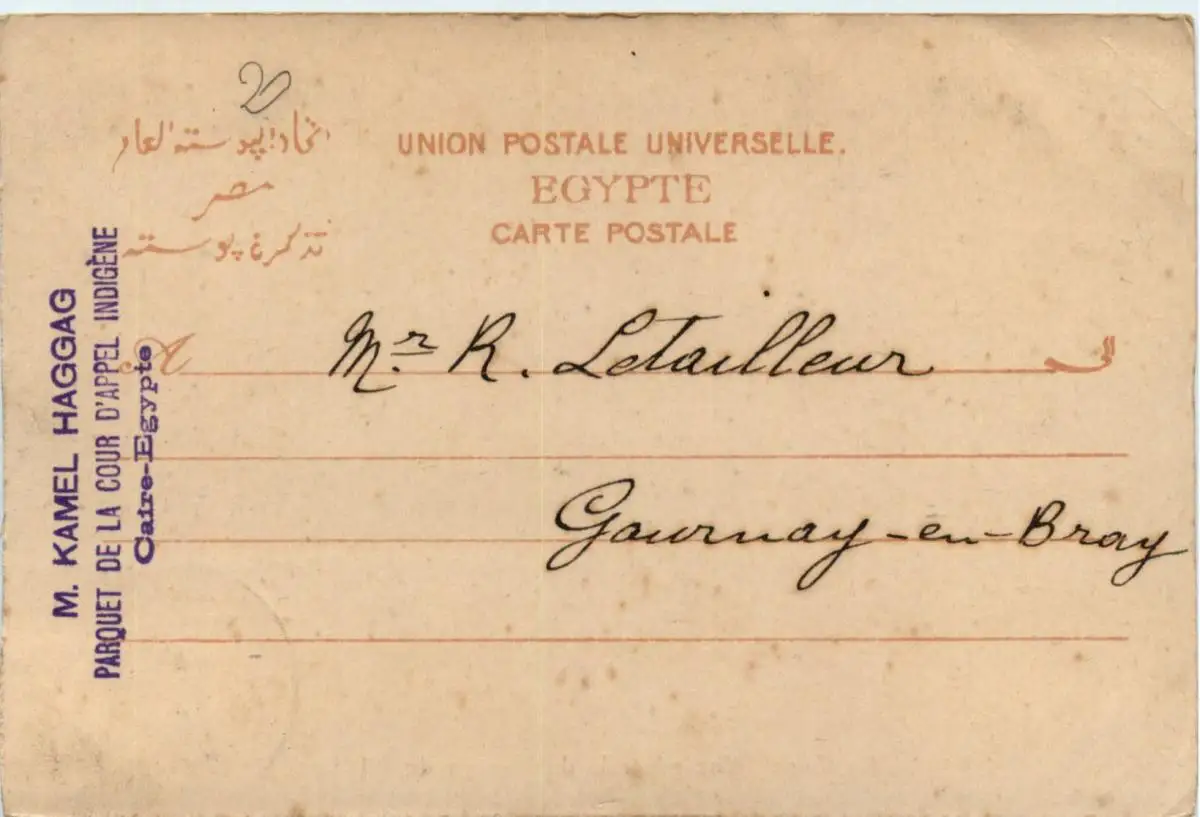 20
اتحاد البوسته العام
مصر
تذكرة بوسته
UNION POSTALE UNIVERSELLE.
EGYPTE
CARTE POSTALE
A
الى
Mr. R. Letailleur
Gournay-en-Bray
M. KAMEL HAGGAG
PARQUET DE LA COUR D'APPEL INDIGÈNE
Caire-Egypte